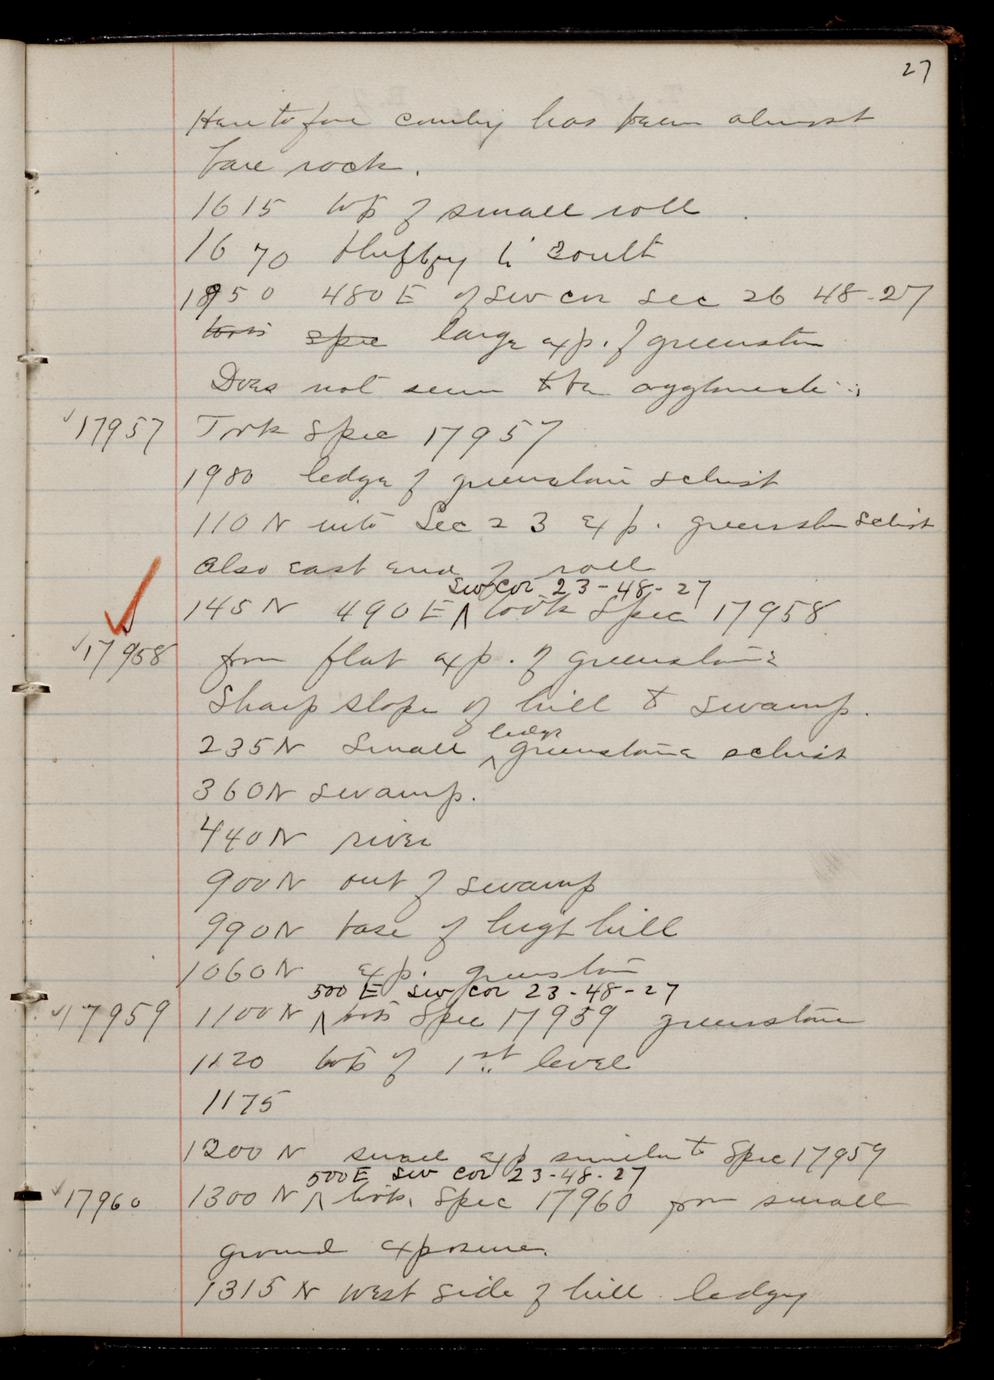 27
Heretofore country has been almost
bare rock.
1615 top of small roll
1670 bluffy to south
1950 480 E of SW cor Sec 26 48-27
took spec large exp. of greenstone
Does not seem to be agglomerate
17957 Took Spec 17957
1980 ledge of greenstone schist
110 N into Sec 23 exp. greenstn schist
also east end of roll
SW cor 23-48-27
145 N 490 E ^ took Spec 17958
17958 from flat exp. of greenstone
Sharp slope of hill to swamp.
ledge
235 N small ^ greenstone schist
360 N swamp.
440 N river
900 N out of swamp
990 N base of high hill
1060 N exp. greenston
500 E SW cor 23-48-27
17959 1100 N ^ took Spec 17959 greenstone
1120 top of 1st level
1175
1200 N small exp similar to Spec 17959
500 E SW cor 23-48-27
17960 1300 N ^ took Spec 17960 from small
ground exposure.
1315 N west side of hill ledgy